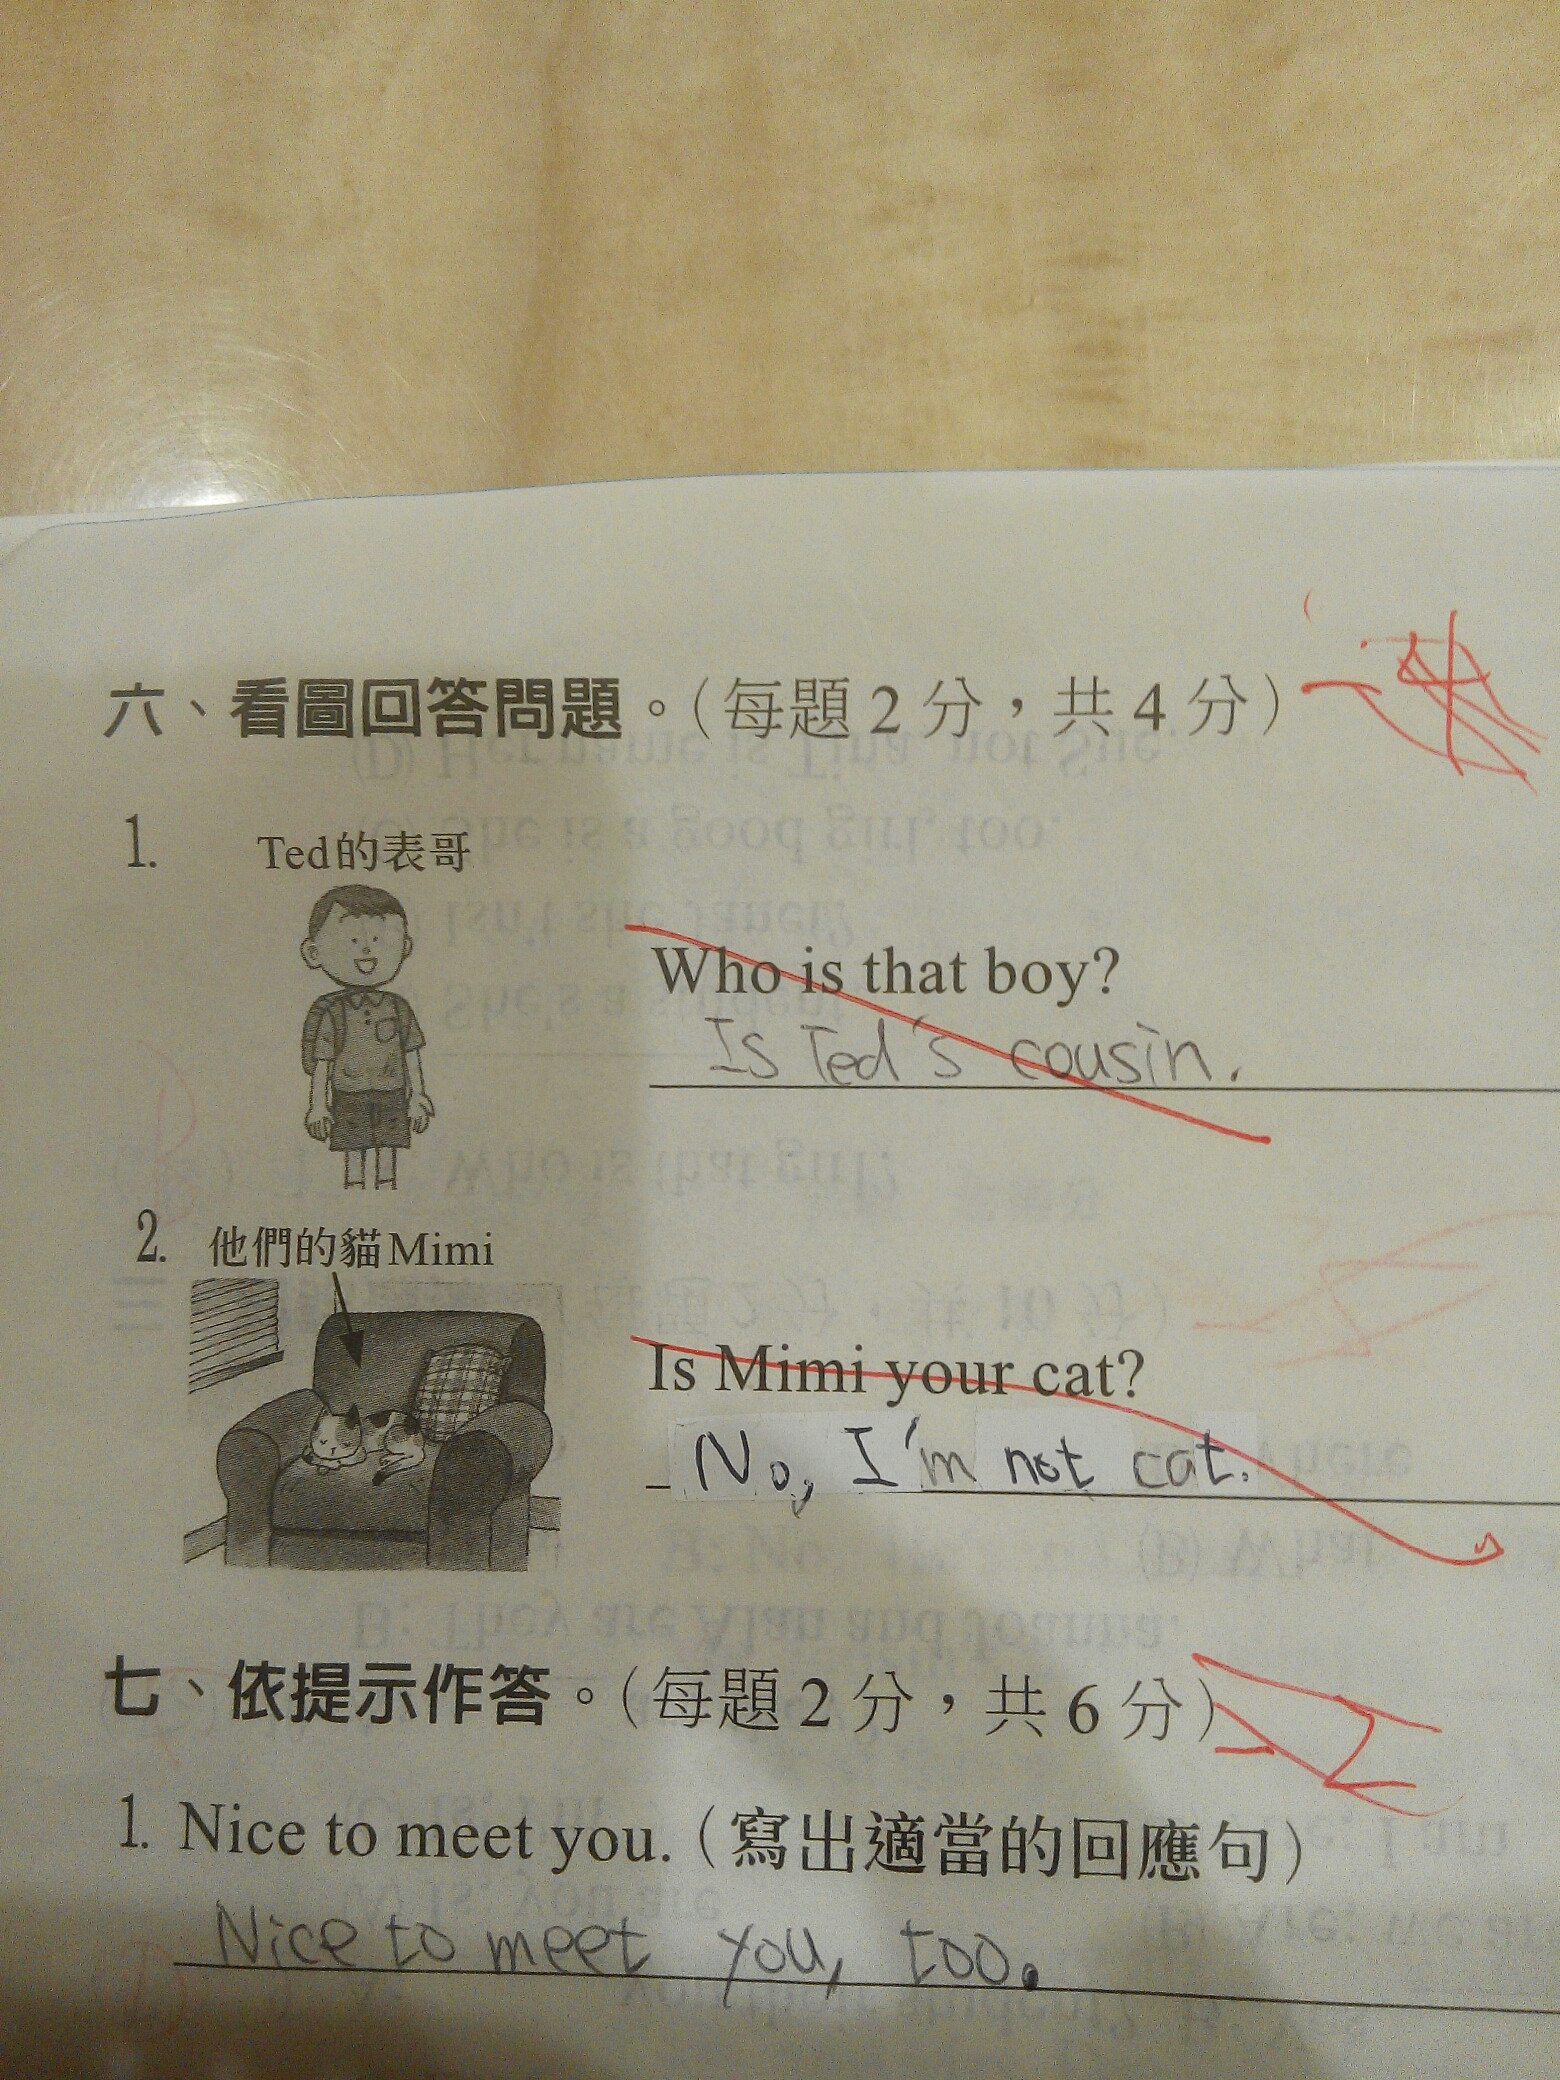 六、看圖回答問題。(每題2分，共4分)
1. Ted的表哥
Who is that boy?
Is Ted's cousin.
2. 他們的貓Mimi
Is Mimi your cat?
No, I'm not cat.
七、依提示作答。(每題2分，共6分)
1. Nice to meet you. (寫出適當的回應句)
Nice to meet you, too.